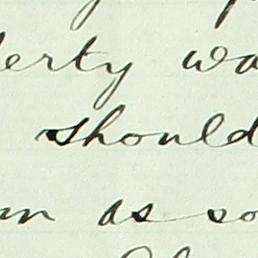 erty wa
should
as so